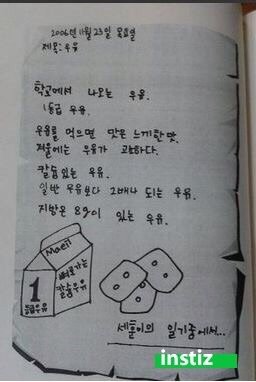 2006년 11월 23일 목요일
제목: 우유
학교에서 나오는 우유.
1등급 우유.
우유를 먹으면 맛은 느끼한 맛.
겨울에는 우유가 곤하다.
칼슘 있는 우유.
일반 우유보다 2배나 되는 우유.
지방은 8g이 있는 우유.
Maeil
뼈로가는
칼슘우유
1
등급우유
세훈이의 일기중에서...
instiz